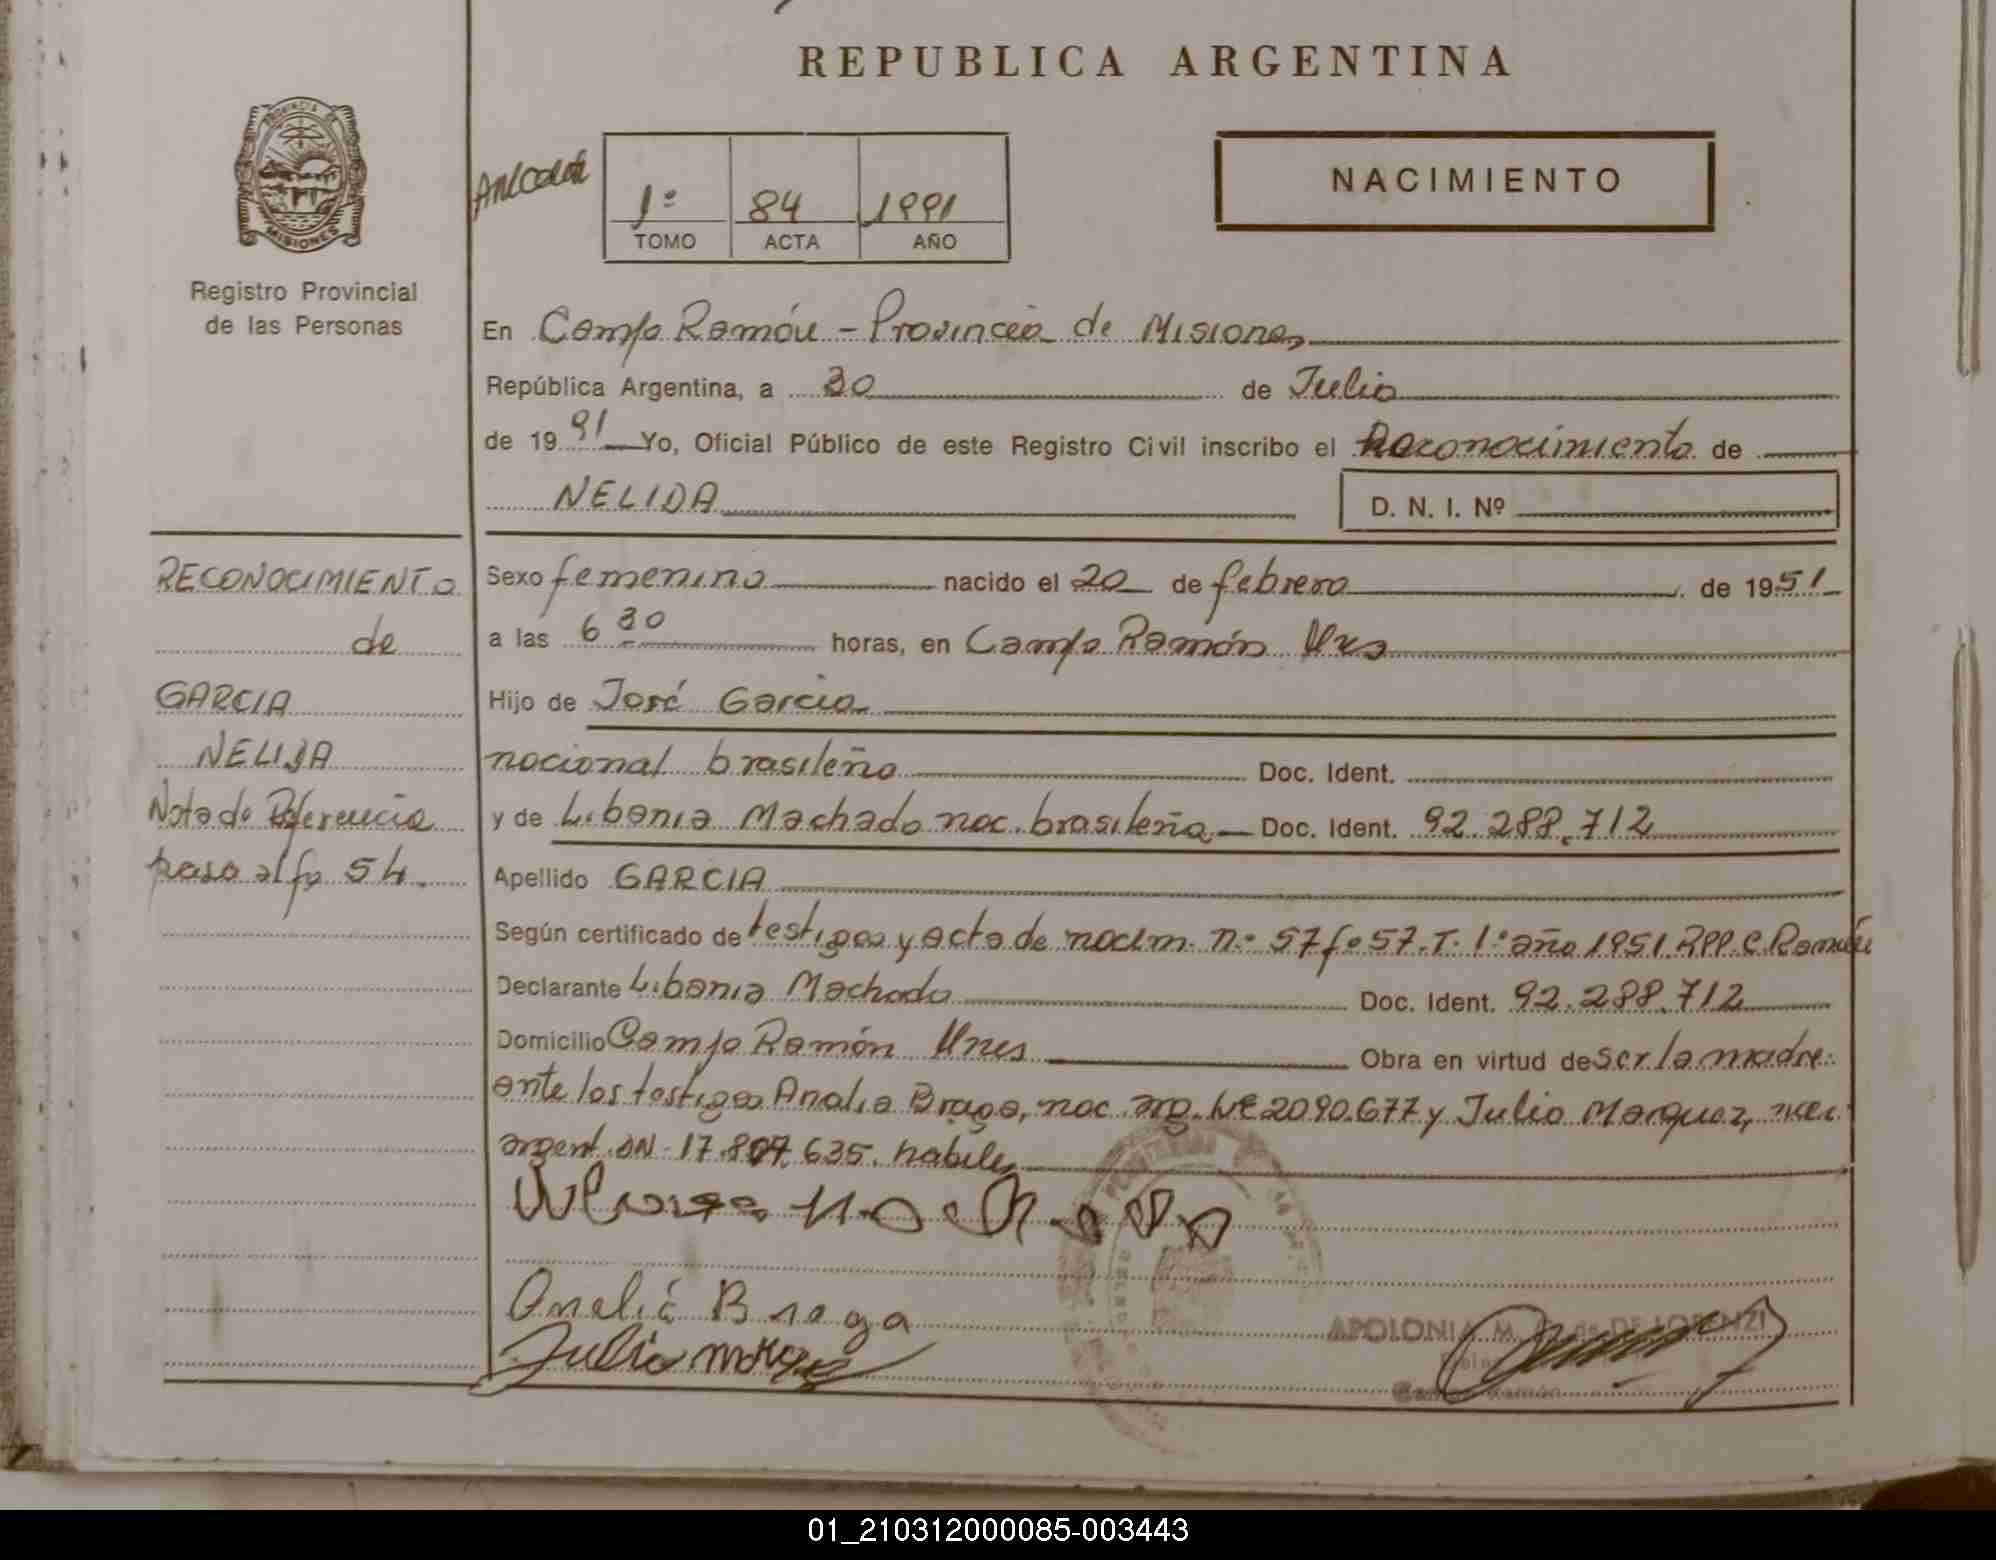 REPUBLICA ARGENTINA
PROVINCIA DE
MISIONES
Registro Provincial
de las Personas
1º 84 1991
TOMO ACTA AÑO
NACIMIENTO
En Campo Ramón - Provincia de Misiones
República Argentina, a 30 de Julio
de 1991 Yo, Oficial Público de este Registro Civil inscribo el Reconocimiento de
NELIDA D. N. I. Nº
RECONOCIMIENTO
de
GARCIA
NELIDA
Nota de Referencia
paso al fo 54.
Sexo femenino nacido el 20 de febrero de 1951
a las 6 30 horas, en Campo Ramón Mnes
Hijo de José Garcia
nacional brasileño Doc. Ident.
y de Libania Machado nac. brasileña Doc. Ident. 92.288.712
Apellido GARCIA
Según certificado de testigos y acta de nacim. nº 57 fo 57. T. 1º año 1951. RPP. C. Ramón
Declarante Libania Machado Doc. Ident. 92.288.712
Domicilio Campo Ramón Mnes Obra en virtud de ser la madre.
ante los testigos Analia Braga, nac. arg. LC 2090.677 y Julio Marquez, nac.
argent. DN. 17.807.635. habiles
Analiá Braga
Julio
APOLONIA M. de DE LORENZI
Ramón
01_210312000085-003443